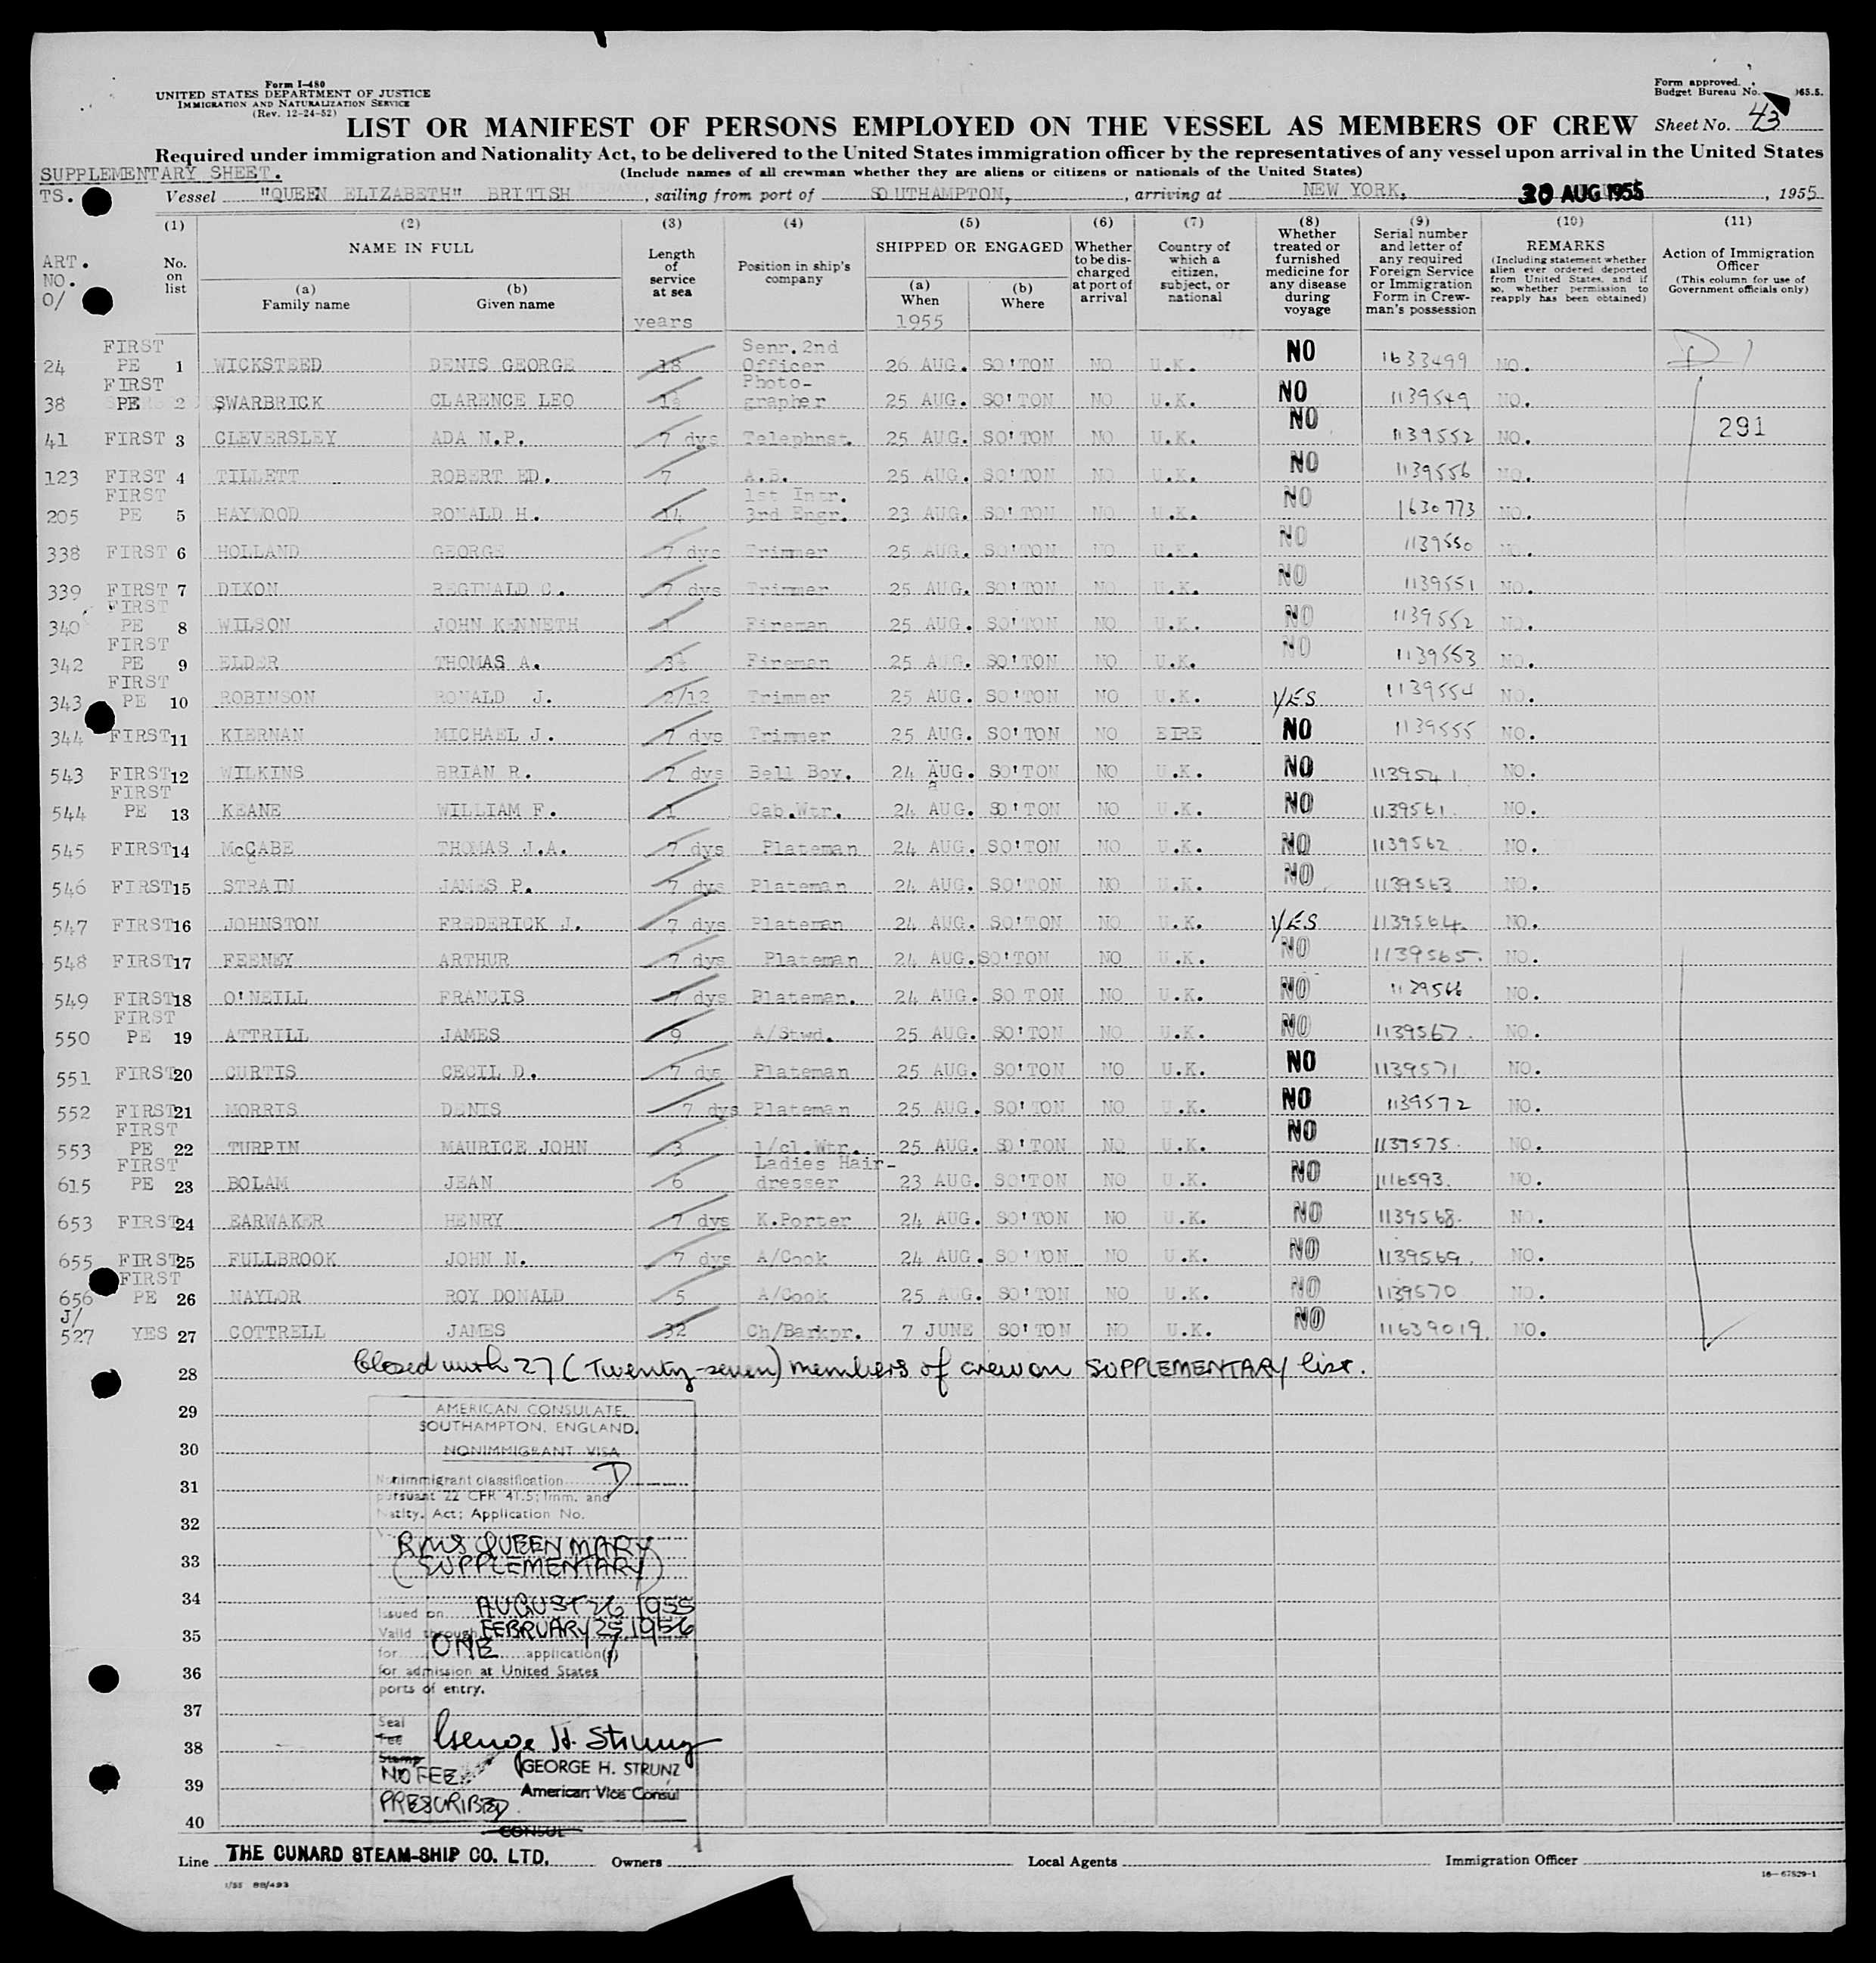 Form I-480
UNITED STATES DEPARTMENT OF JUSTICE
IMMIGRATION AND NATURALIZATION SERVICE
(Rev. 12-24-52)
Form approved.
Budget Bureau No. 65.5.
LIST OR MANIFEST OF PERSONS EMPLOYED ON THE VESSEL AS MEMBERS OF CREW Sheet No. 43
Required under immigration and Nationality Act, to be delivered to the United States immigration officer by the representatives of any vessel upon arrival in the United States
SUPPLEMENTARY SHEET. (Include names of all crewman whether they are aliens or citizens or nationals of the United States)
TS. Vessel "QUEEN ELIZABETH" BRITISH, sailing from port of SOUTHAMPTON, arriving at NEW YORK, 30 AUG 1955, 1955
(1) (2) (3) (4) (5) (6) (7) (8) (9) (10) (11)
ART. NO. O/
No. on list
NAME IN FULL
(a) Family name
(b) Given name
Length of service at sea
years
Position in ship's company
SHIPPED OR ENGAGED
(a) When
1955
(b) Where
Whether to be discharged at port of arrival
Country of which a citizen, subject, or national
Whether treated or furnished medicine for any disease during voyage
Serial number and letter of any required Foreign Service or Immigration Form in Crewman's possession
REMARKS
(Including statement whether alien ever ordered deported from United States, and if so, whether permission to reapply has been obtained)
Action of Immigration Officer
(This column for use of Government officials only)
24 FIRST PE 1 WICKSTEED DENIS GEORGE 18 Senr. 2nd Officer 26 AUG. SO'TON NO U.K. NO 1633499 NO. D 1
38 FIRST PE 2 SWARBRICK CLARENCE LEO 1½ Photographer 25 AUG. SO'TON NO U.K. NO 1139549 NO.
41 FIRST 3 CLEVERSLEY ADA N.P. 7 dys Telephnst. 25 AUG. SO'TON NO U.K. NO 1139552 NO. 291
123 FIRST 4 TILLETT ROBERT ED. 7 A.B. 25 AUG. SO'TON NO U.K. NO 1139556 NO.
205 FIRST PE 5 HAYWOOD RONALD H. 14 1st Intr. 3rd Engr. 23 AUG. SO'TON NO U.K. NO 1630773 NO.
338 FIRST 6 HOLLAND GEORGE 7 dys Trimmer 25 AUG. SO'TON NO U.K. NO 1139550 NO.
339 FIRST 7 DIXON REGINALD C. 7 dys Trimmer 25 AUG. SO'TON NO U.K. NO 1139551 NO.
340 FIRST PE 8 WILSON JOHN KENNETH 1 Fireman 25 AUG. SO'TON NO U.K. NO 1139552 NO.
342 FIRST PE 9 ELDER THOMAS A. 3½ Fireman 25 AUG. SO'TON NO U.K. NO 1139553 NO.
343 FIRST PE 10 ROBINSON RONALD J. 2/12 Trimmer 25 AUG. SO'TON NO U.K. YES 1139554 NO.
344 FIRST 11 KIERNAN MICHAEL J. 7 dys Trimmer 25 AUG. SO'TON NO EIRE NO 1139555 NO.
543 FIRST 12 WILKINS BRIAN R. 7 dys Bell Boy. 24 AUG. SO'TON NO U.K. NO 1139541 NO.
544 FIRST PE 13 KEANE WILLIAM F. 1 Cab.Wtr. 24 AUG. SO'TON NO U.K. NO 1139561 NO.
545 FIRST 14 McCABE THOMAS J.A. 7 dys Plateman 24 AUG. SO'TON NO U.K. NO 1139562 NO.
546 FIRST 15 STRAIN JAMES P. 7 dys Plateman 24 AUG. SO'TON NO U.K. NO 1139563 NO.
547 FIRST 16 JOHNSTON FREDERICK J. 7 dys Plateman 24 AUG. SO'TON NO U.K. YES 1139564 NO.
548 FIRST 17 FEENEY ARTHUR 7 dys Plateman 24 AUG. SO'TON NO U.K. NO 1139565 NO.
549 FIRST 18 O'NEILL FRANCIS 7 dys Plateman. 24 AUG. SO TON NO U.K. NO 1139566 NO.
550 FIRST PE 19 ATTRILL JAMES 9 A/Stwd. 25 AUG. SO'TON NO U.K. NO 1139567 NO.
551 FIRST 20 CURTIS CECIL D. 7 dys Plateman 25 AUG. SO'TON NO U.K. NO 1139571 NO.
552 FIRST 21 MORRIS DENIS 7 dys Plateman 25 AUG. SO'TON NO U.K. NO 1139572 NO.
553 FIRST PE 22 TURPIN MAURICE JOHN 3 1/cl.Wtr. 25 AUG. SO'TON NO U.K. NO 1139575 NO.
615 FIRST PE 23 BOLAM JEAN 6 Ladies Hair-dresser 23 AUG. SO'TON NO U.K. NO 1116593 NO.
653 FIRST 24 EARWAKER HENRY 7 dys K.Porter 24 AUG. SO'TON NO U.K. NO 1139568 NO.
655 FIRST 25 FULLBROOK JOHN N. 7 dys A/Cook 24 AUG. SO'TON NO U.K. NO 1139569 NO.
656 FIRST PE 26 NAYLOR ROY DONALD 5 A/Cook 25 AUG. SO'TON NO U.K. NO 1139570 NO.
J/ 527 YES 27 COTTRELL JAMES 32 Ch/Barkpr. 7 JUNE SO'TON NO U.K. NO 11639019 NO.
28 Closed with 27 (Twenty-seven) members of crew on SUPPLEMENTARY list.
29 AMERICAN CONSULATE.
SOUTHAMPTON, ENGLAND.
30 NONIMMIGRANT VISA
Nonimmigrant classification D
31 pursuant 22 CFR 41.5; Imm. and
Natlty. Act; Application No.
32
RMS QUEEN MARY
33 (SUPPLEMENTARY)
34
Issued on AUGUST 26 1955
35 Valid through FEBRUARY 25, 1956
for ONE application(s)
36 for admission at United States
ports of entry.
37
Seal
Fee George H. Strunz
38 Stamp
NO FEE GEORGE H. STRUNZ
39 American Vice Consul
PRESCRIBED
40
CONSUL
Line THE CUNARD STEAM-SHIP CO. LTD. Owners Local Agents Immigration Officer
1/55 BB/493
16-67529-1